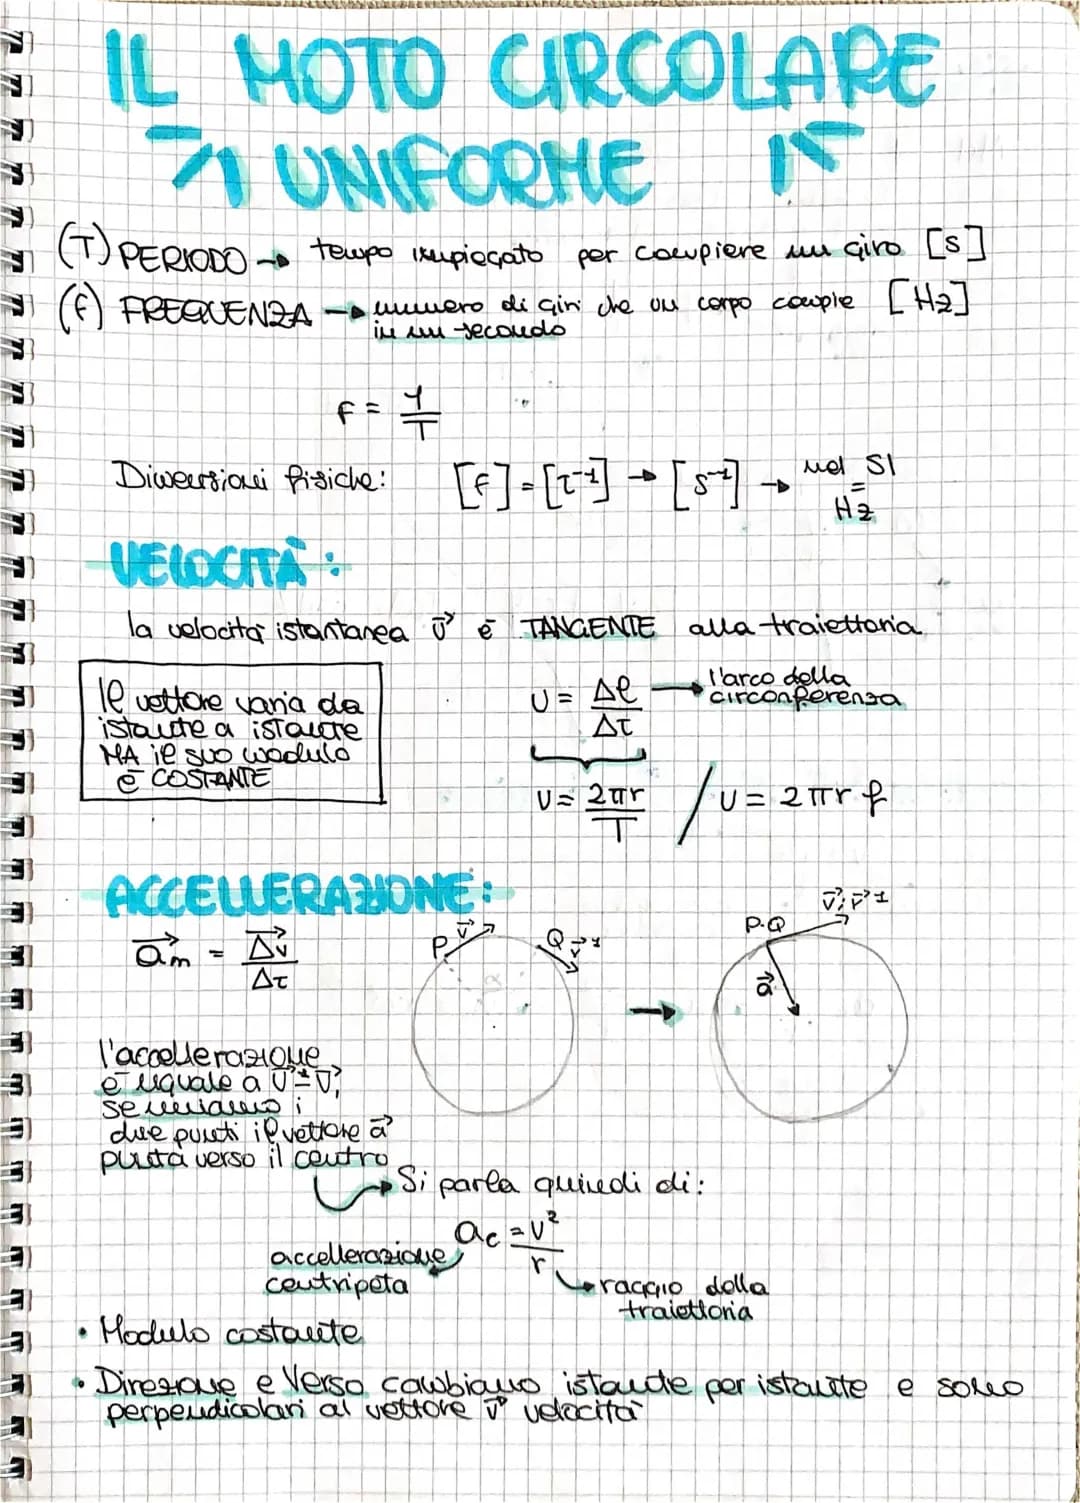 IL MOTO CIRCOLARE
UNIFORME
(T) PERIODO → tempo impiegato per compiere un giro [s]
(f) FREQUENZA → numero di giri che un corpo compie [Hz]
in un secondo
f = 1/T
Dimensioni fisiche: [f] = [t⁻¹] → [s⁻¹] → nel SI
=
Hz
VELOCITÀ:
la velocità istantanea v⃗ è TANGENTE alla traiettoria
Il vettore varia da
istante a istante
MA il suo modulo
è COSTANTE
v = Δl/Δt → l'arco della
circonferenza
v = 2πr/T / v = 2πr f
ACCELLERAZIONE:
a⃗m = Δv⃗/Δt
P v⃗ Q v⃗¹
P·Q v⃗; v⃗¹
a⃗
l'accellerazione
è uguale a v⃗¹-v⃗;
se uniamo i
due punti il vettore a⃗
punta verso il centro
Si parla quindi di:
ac = v²/r
accellerazione
centripeta
raggio della
traiettoria
• Modulo costante
• Direzione e Verso cambiano istande per istante e sono
perpendicolari al vettore v⃗ velocità